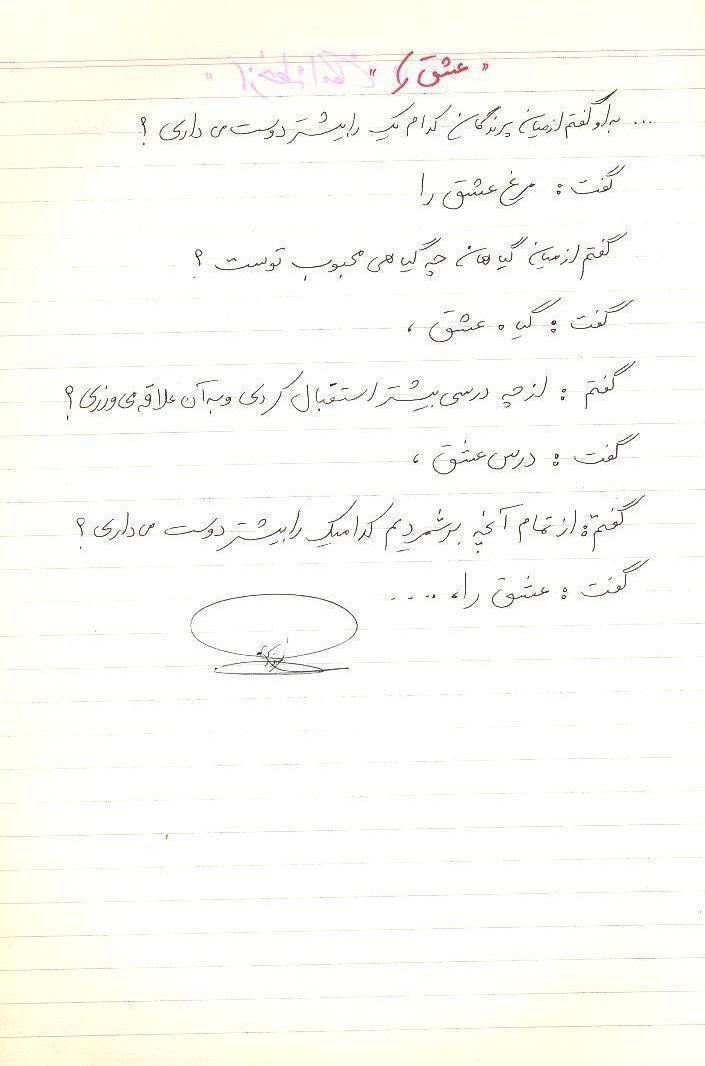 "عشق را"
... به او گفتم از میان پرندگان کدام یک را بیشتر دوست می داری ؟
گفت : مرغ عشق را
گفتم از میان گیاهان چه گیاهی محبوب توست ؟
گفت : گیاه عشق ،
گفتم : از چه درسی بیشتر استقبال کردی و به آن علاقه می ورزی ؟
گفت : درس عشق ،
گفتم : از تمام آنچه برشمردیم کدامیک را بیشتر دوست می داری ؟
گفت : عشق را، ....